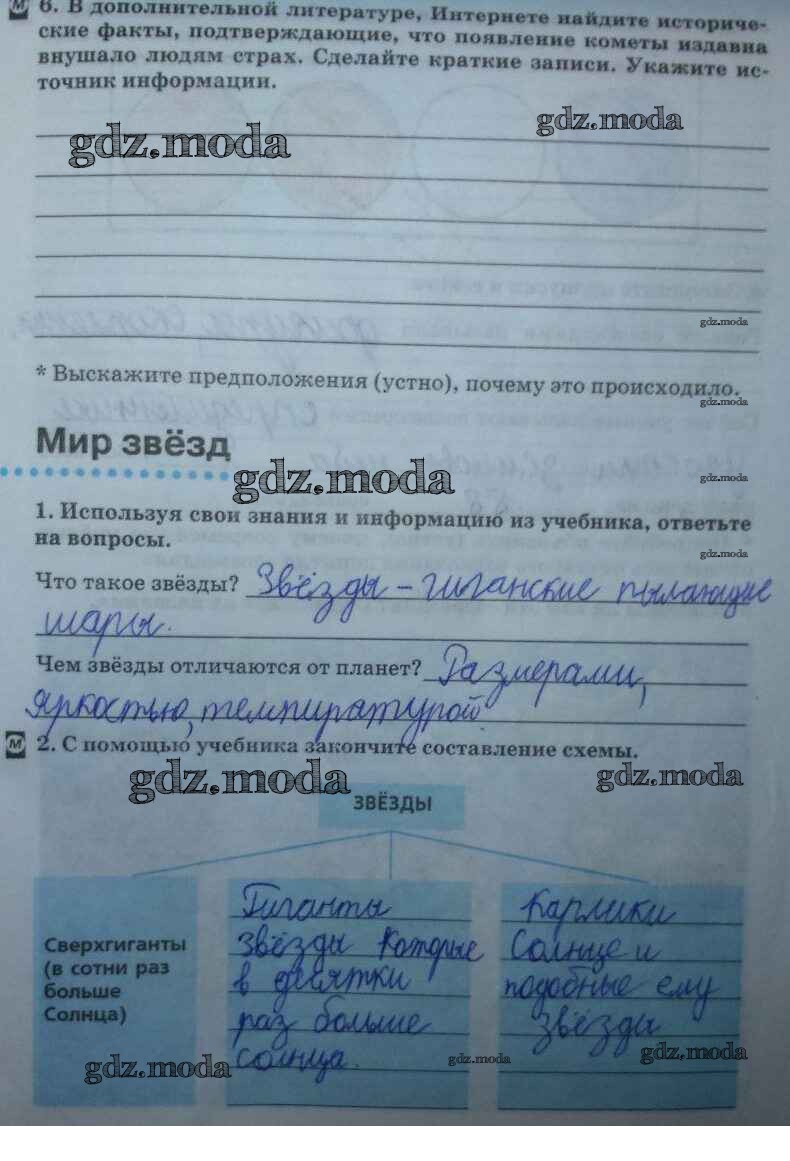 М 6. В дополнительной литературе, Интернете найдите историче-
ские факты, подтверждающие, что появление кометы издавна
внушало людям страх. Сделайте краткие записи. Укажите ис-
точник информации.
gdz.moda
gdz.moda
gdz.moda
* Выскажите предположения (устно), почему это происходило.
gdz.moda
Мир звёзд
gdz.moda
gdz.moda
1. Используя свои знания и информацию из учебника, ответьте
на вопросы.
gdz.moda
Что такое звёзды? Звёзды – гиганские пылающие
шары.
Чем звёзды отличаются от планет? Размерами,
яркостью, температурой
М 2. С помощью учебника закончите составление схемы.
gdz.moda
gdz.moda
ЗВЁЗДЫ
Сверхгиганты
(в сотни раз
больше
Солнца)
Гиганты
звёзды которые
в десятки
раз больше
солнца.
Карлики
Солнце и
подобные ему
звёзды
gdz.moda
gdz.moda
gdz.moda